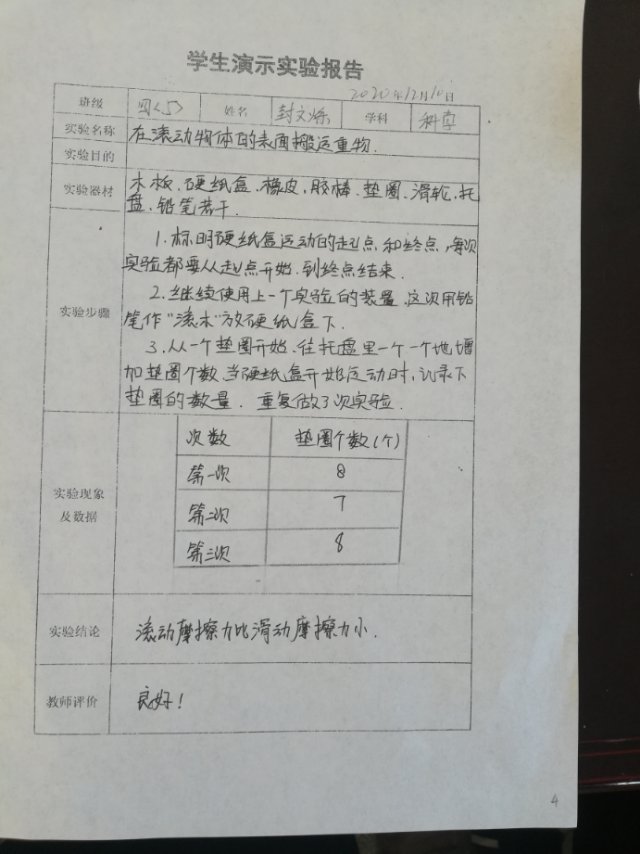 学生演示实验报告
2020年12月10日
班级 四(5) 姓名 封文 学科 科学
实验名称 在滚动物体的表面搬运重物.
实验目的
实验器材 木板、硬纸盒、橡皮、胶棒、垫圈、滑轮、托
盘、铅笔若干.
实验步骤
1.标明硬纸盒运动的起点和终点,每次
实验都要从起点开始,到终点结束.
2.继续使用上一个实验的装置,这次用铅
笔作“滚木”放硬纸盒下.
3.从一个垫圈开始,往托盘里一个一个地增
加垫圈个数,当硬纸盒开始运动时,记录下
垫圈的数量. 重复做了3次实验.
实验现象
及数据
次数 垫圈个数(个)
第一次 8
第二次 7
第三次 8
实验结论 滚动摩擦力比滑动摩擦力小.
教师评价 良好!
4